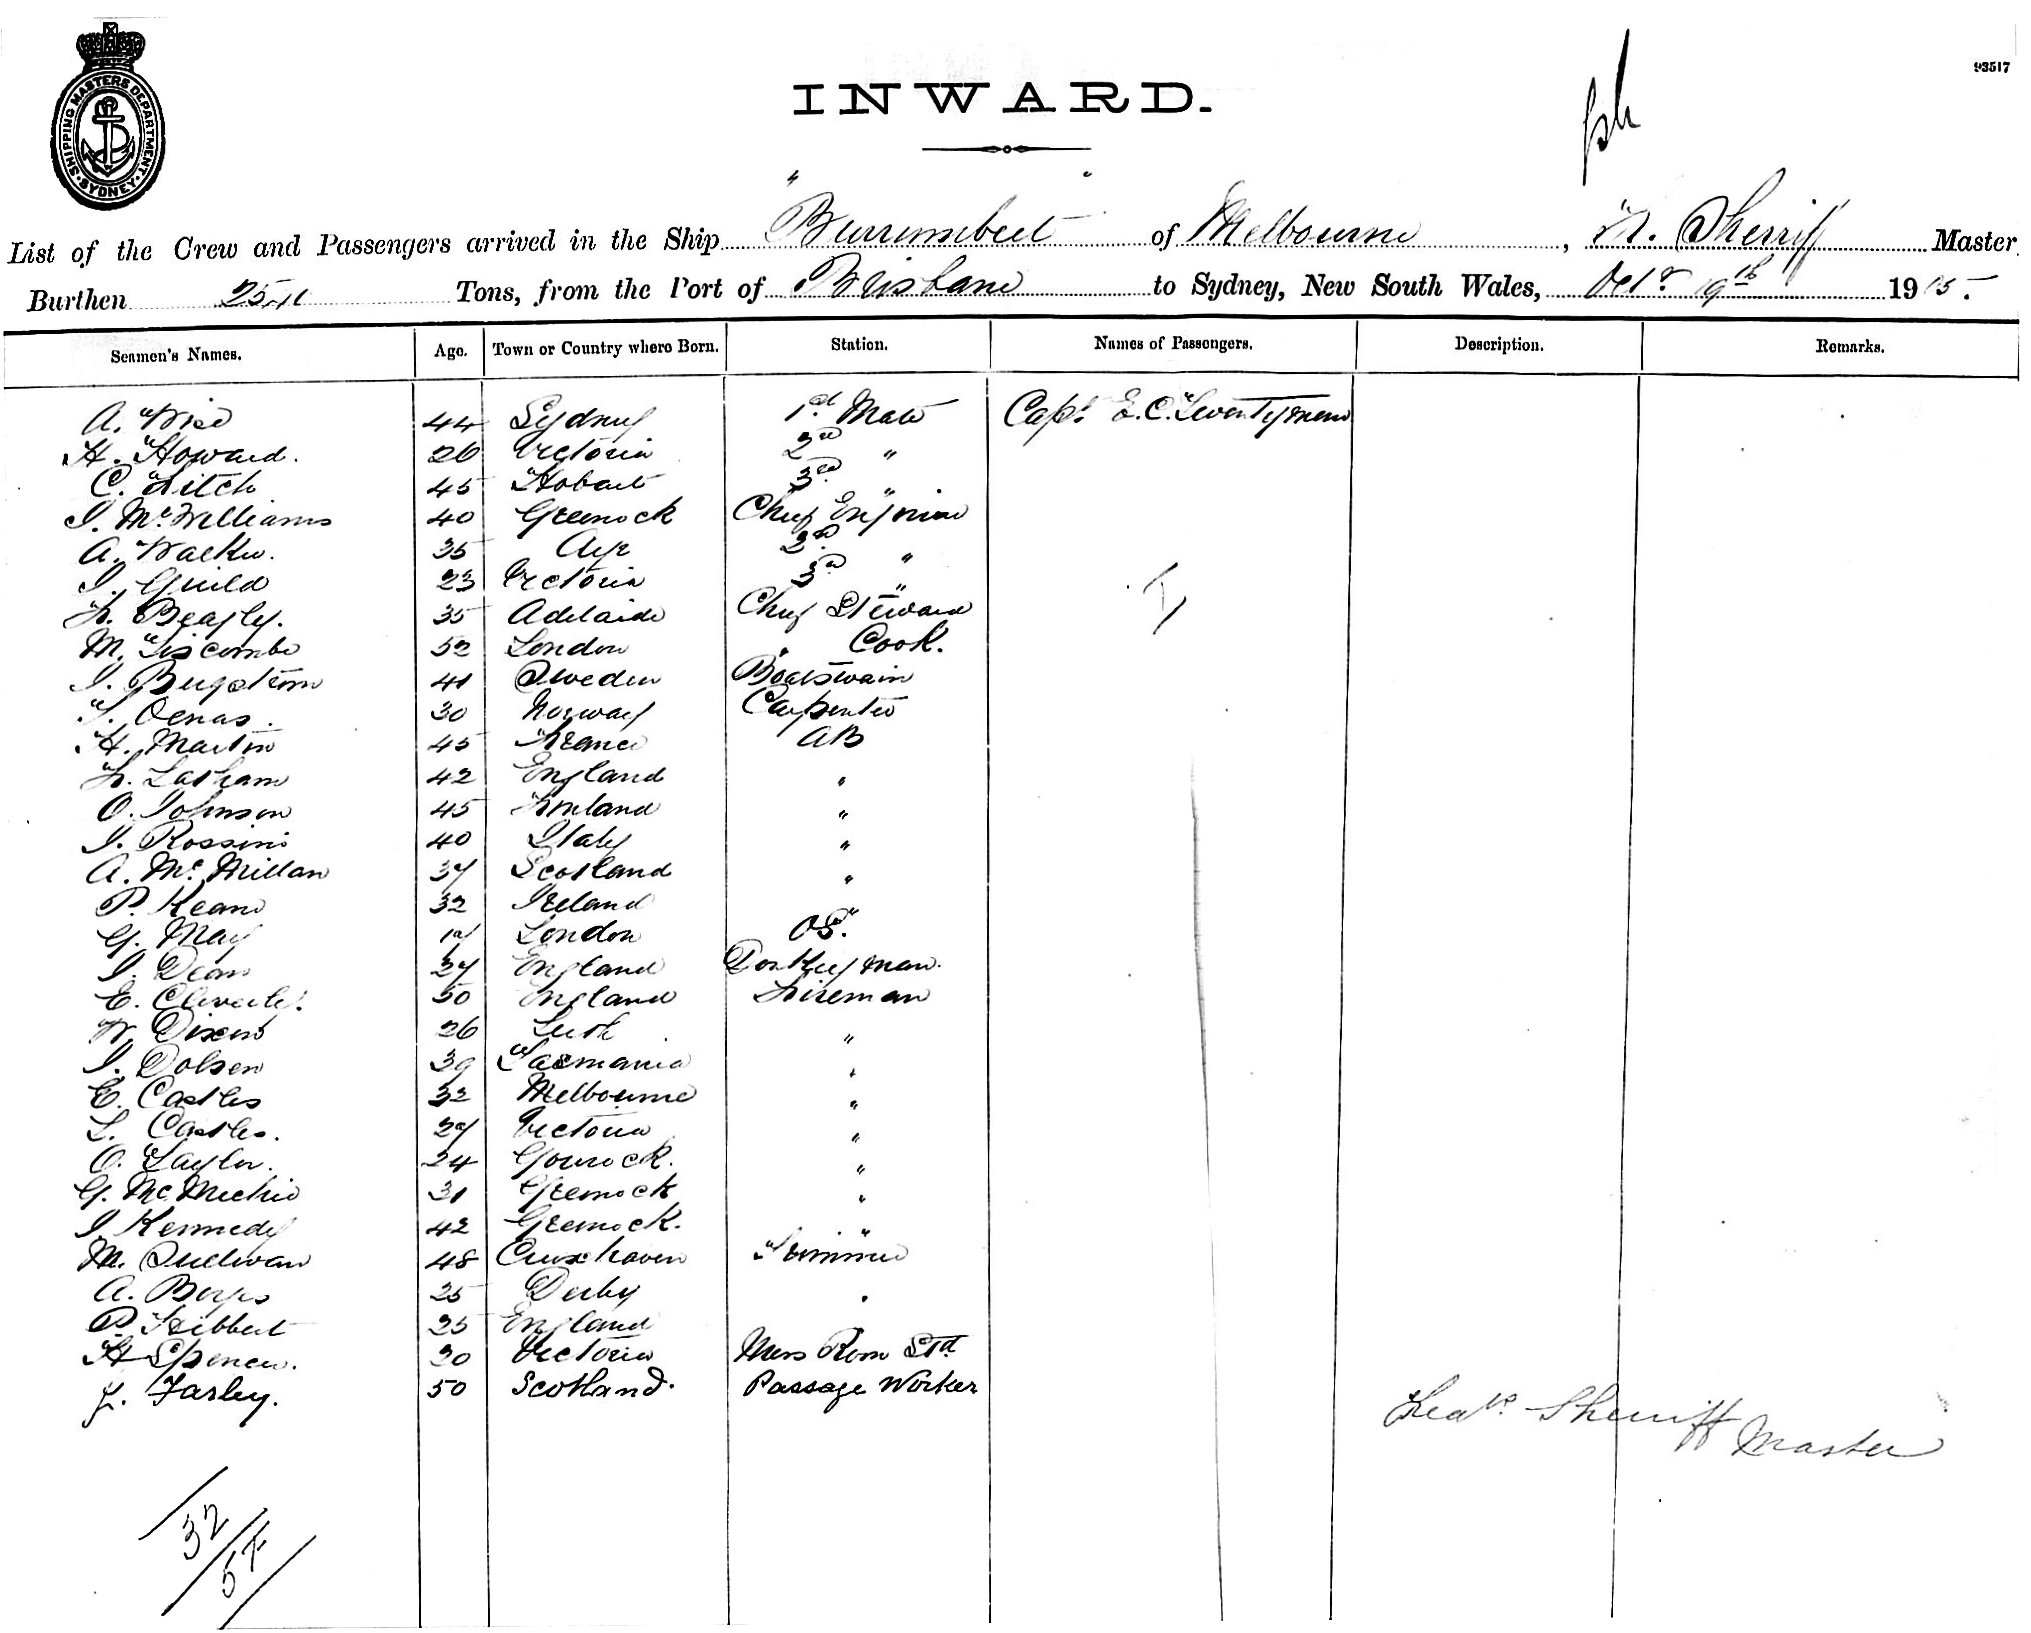 SHIPPING MASTERS DEPARTMENT. SYDNEY.
93517
INWARD.
List of the Crew and Passengers arrived in the Ship "Burrumbeet" of Melbourne, Sherriff Master
Burthen Tons, from the Port of Brisbane to Sydney, New South Wales, Octr 19th 1915.
Seamen's Names. Age. Town or Country where Born. Station. Names of Passengers. Description. Remarks.
A. Wise 44 Sydney 1st Mate Capt. E.C. Twentyman
H. Howard. 26 Victoria 2nd "
C. Fitch 45 Hobart 3rd "
J. McWilliams 40 Greenock Chief Engineer
A. Walker. 35 Ayr 2nd "
J. Guild 23 Victoria 3rd "
35 Adelaide Chief Steward
M. Liscombe 52 London " Cook.
J. Bergstrom 41 Sweden Boatswain
30 Norway Carpenter
H. Martin 45 France AB
F. Latham 42 England "
O. Johnson 45 Finland "
J. Rossini 40 Italy "
A. McMillan 37 Scotland "
P. Keane 32 Ireland "
G. May London OS.
J. Dean 27 England Donkeyman.
E. 50 England Fireman
W. Dixon 26 Leith "
J. Dolsen 39 Tasmania "
E. Castles 32 Melbourne "
L. Castles. Victoria "
O. Taylor. 24 Gourock. "
G. McMechie 31 Greenock "
J. Kennedy 42 Greenock. "
M. Sullivan 48 Cuxhaven Trimmer
A. 25 Derby "
P. Hibbert 25 England
H Spencer. 20 Victoria Mess Room Std
J. Farley. 50 Scotland. Passage Worker
Sherriff
Master
32